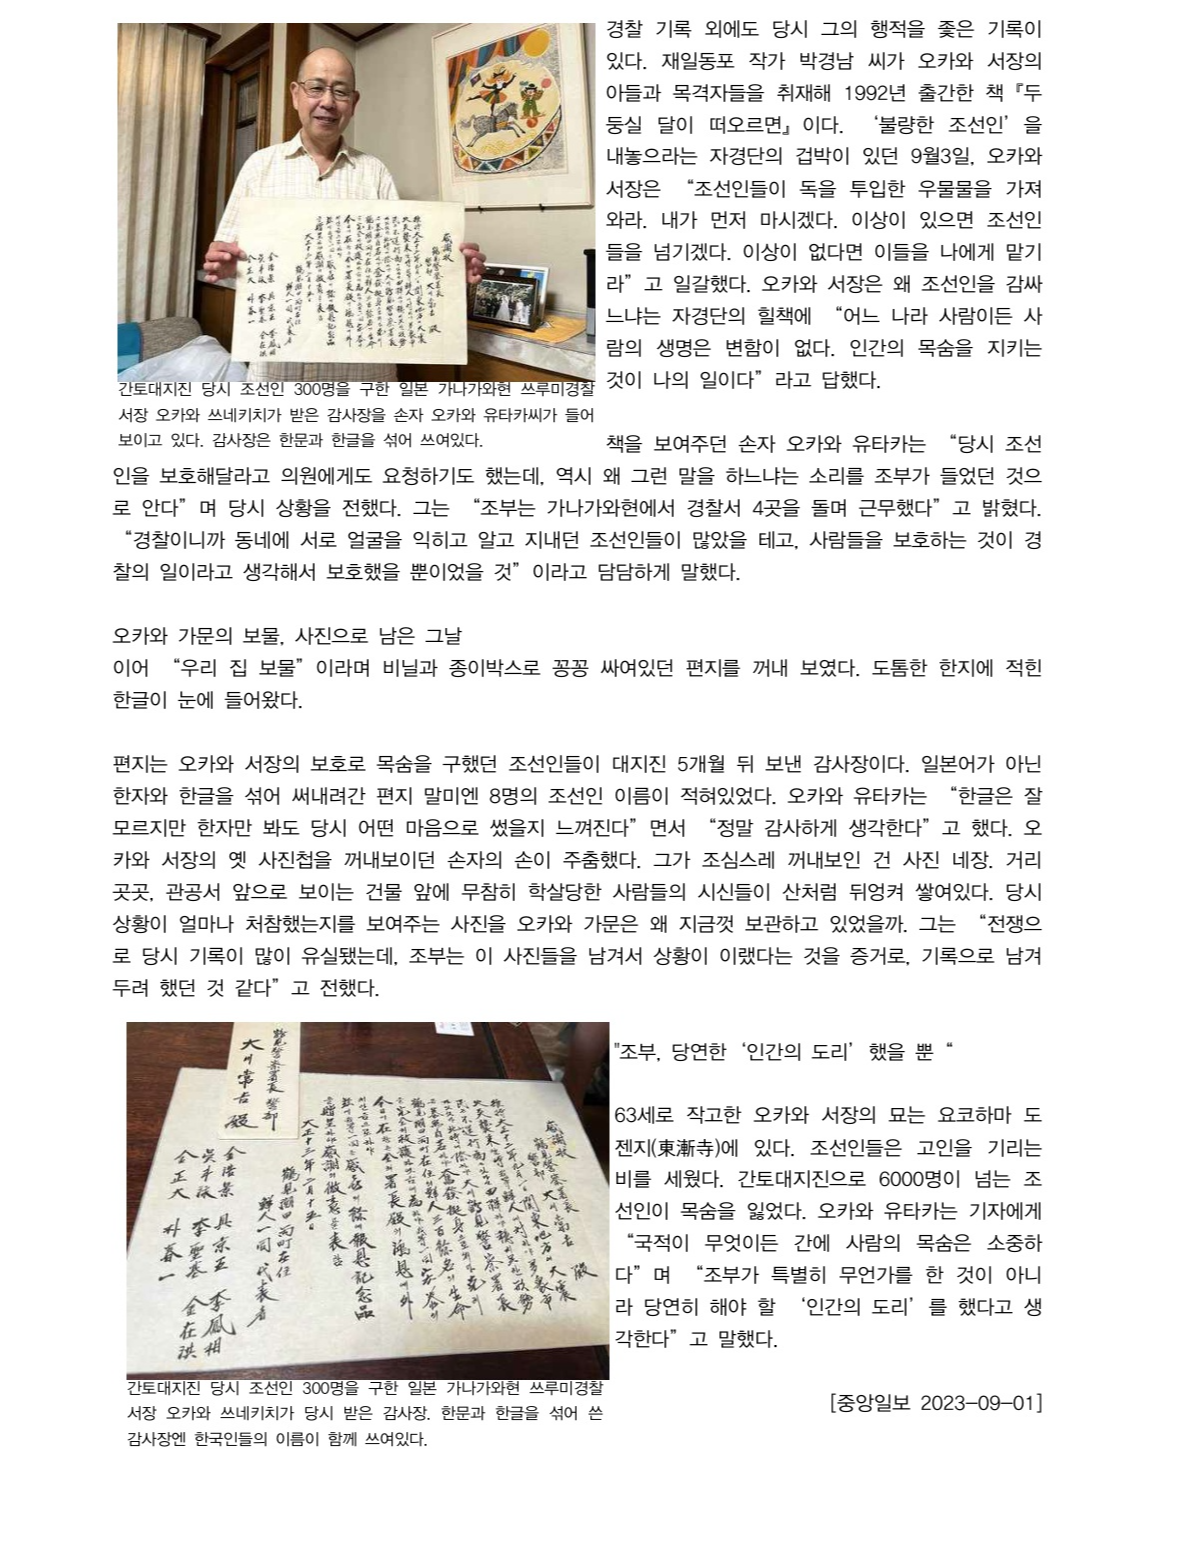 경찰 기록 외에도 당시 그의 행적을 좇은 기록이
있다. 재일동포 작가 박경남 씨가 오카와 서장의
아들과 목격자들을 취재해 1992년 출간한 책『두
둥실 달이 떠오르면』이다. ‘불량한 조선인’을
내놓으라는 자경단의 겁박이 있던 9월3일, 오카와
서장은 “조선인들이 독을 투입한 우물물을 가져
와라. 내가 먼저 마시겠다. 이상이 있으면 조선인
들을 넘기겠다. 이상이 없다면 이들을 나에게 맡기
라”고 일갈했다. 오카와 서장은 왜 조선인을 감싸
느냐는 자경단의 힐책에 “어느 나라 사람이든 사
람의 생명은 변함이 없다. 인간의 목숨을 지키는
것이 나의 일이다”라고 답했다.
간토대지진 당시 조선인 300명을 구한 일본 가나가와현 쓰루미경찰
서장 오카와 쓰네키치가 받은 감사장을 손자 오카와 유타카씨가 들어
보이고 있다. 감사장은 한문과 한글을 섞어 쓰여있다.
책을 보여주던 손자 오카와 유타카는 “당시 조선
인을 보호해달라고 의원에게도 요청하기도 했는데, 역시 왜 그런 말을 하느냐는 소리를 조부가 들었던 것으
로 안다”며 당시 상황을 전했다. 그는 “조부는 가나가와현에서 경찰서 4곳을 돌며 근무했다”고 밝혔다.
“경찰이니까 동네에 서로 얼굴을 익히고 알고 지내던 조선인들이 많았을 테고, 사람들을 보호하는 것이 경
찰의 일이라고 생각해서 보호했을 뿐이었을 것”이라고 담담하게 말했다.
오카와 가문의 보물, 사진으로 남은 그날
이어 “우리 집 보물”이라며 비닐과 종이박스로 꽁꽁 싸여있던 편지를 꺼내 보였다. 도톰한 한지에 적힌
한글이 눈에 들어왔다.
편지는 오카와 서장의 보호로 목숨을 구했던 조선인들이 대지진 5개월 뒤 보낸 감사장이다. 일본어가 아닌
한자와 한글을 섞어 써내려간 편지 말미엔 8명의 조선인 이름이 적혀있었다. 오카와 유타카는 “한글은 잘
모르지만 한자만 봐도 당시 어떤 마음으로 썼을지 느껴진다”면서 “정말 감사하게 생각한다”고 했다. 오
카와 서장의 옛 사진첩을 꺼내보이던 손자의 손이 주춤했다. 그가 조심스레 꺼내보인 건 사진 네장. 거리
곳곳, 관공서 앞으로 보이는 건물 앞에 무참히 학살당한 사람들의 시신들이 산처럼 뒤엉켜 쌓여있다. 당시
상황이 얼마나 처참했는지를 보여주는 사진을 오카와 가문은 왜 지금껏 보관하고 있었을까. 그는 “전쟁으
로 당시 기록이 많이 유실됐는데, 조부는 이 사진들을 남겨서 상황이 이랬다는 것을 증거로, 기록으로 남겨
두려 했던 것 같다”고 전했다.
"조부, 당연한‘인간의 도리’했을 뿐“
63세로 작고한 오카와 서장의 묘는 요코하마 도
젠지(東漸寺)에 있다. 조선인들은 고인을 기리는
비를 세웠다. 간토대지진으로 6000명이 넘는 조
선인이 목숨을 잃었다. 오카와 유타카는 기자에게
“국적이 무엇이든 간에 사람의 목숨은 소중하
다”며 “조부가 특별히 무언가를 한 것이 아니
라 당연히 해야 할 ‘인간의 도리’를 했다고 생
각한다”고 말했다.
[중앙일보 2023-09-01]
鶴見警察署長 警部
大川常吉 殿
感謝狀
鶴見警察署長
警部 大川常吉 殿
大正十三年二月十五日
鶴見潮田両町在住
鮮人一同代表者
간토대지진 당시 조선인 300명을 구한 일본 가나가와현 쓰루미경찰
서장 오카와 쓰네키치가 당시 받은 감사장. 한문과 한글을 섞어 쓴
감사장엔 한국인들의 이름이 함께 쓰여있다.